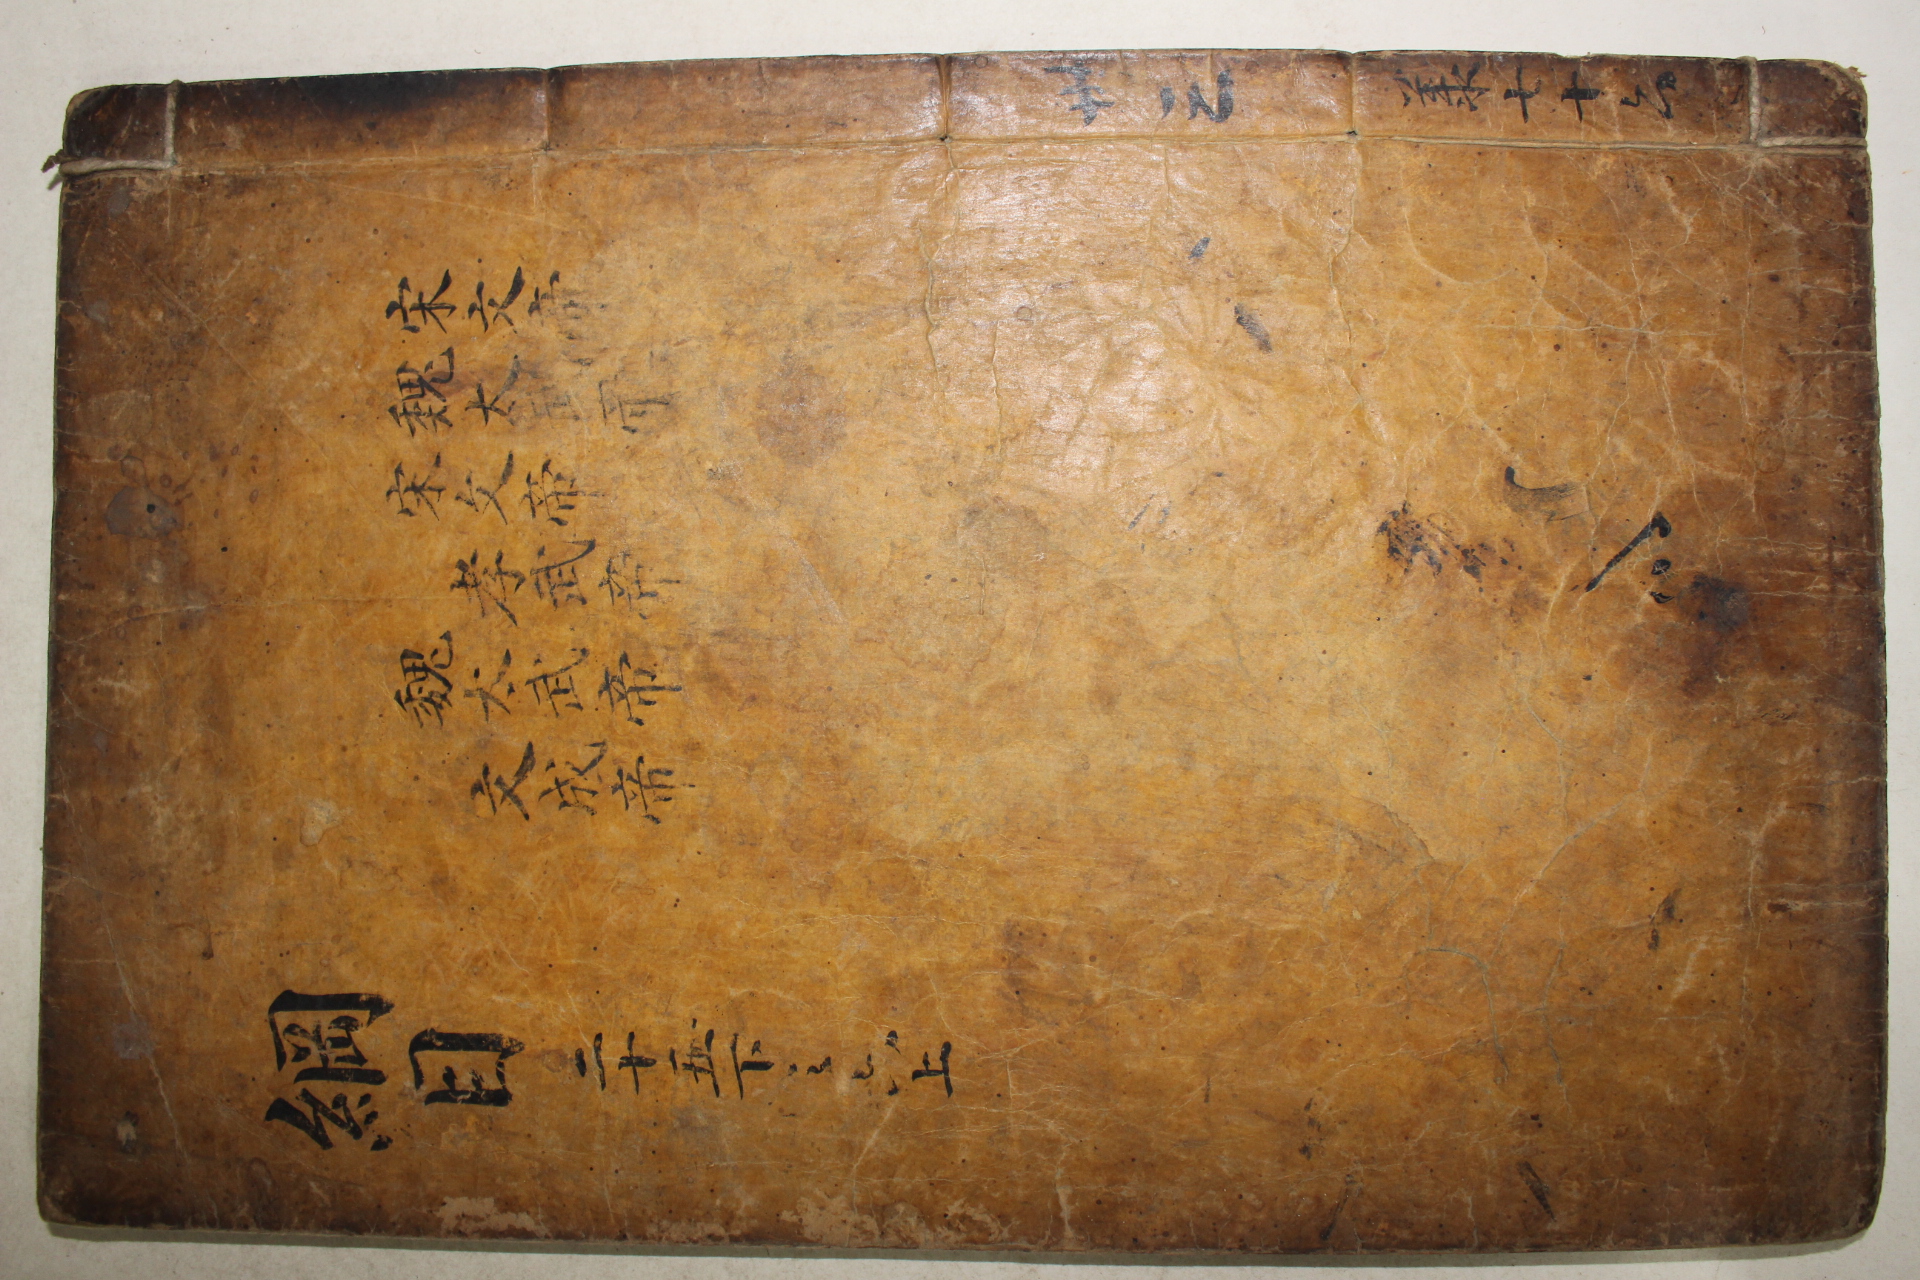 七十
宋文帝
魏太武帝
宋文帝
孝武帝
魏太武帝
文成帝
綱目 二十五下 上